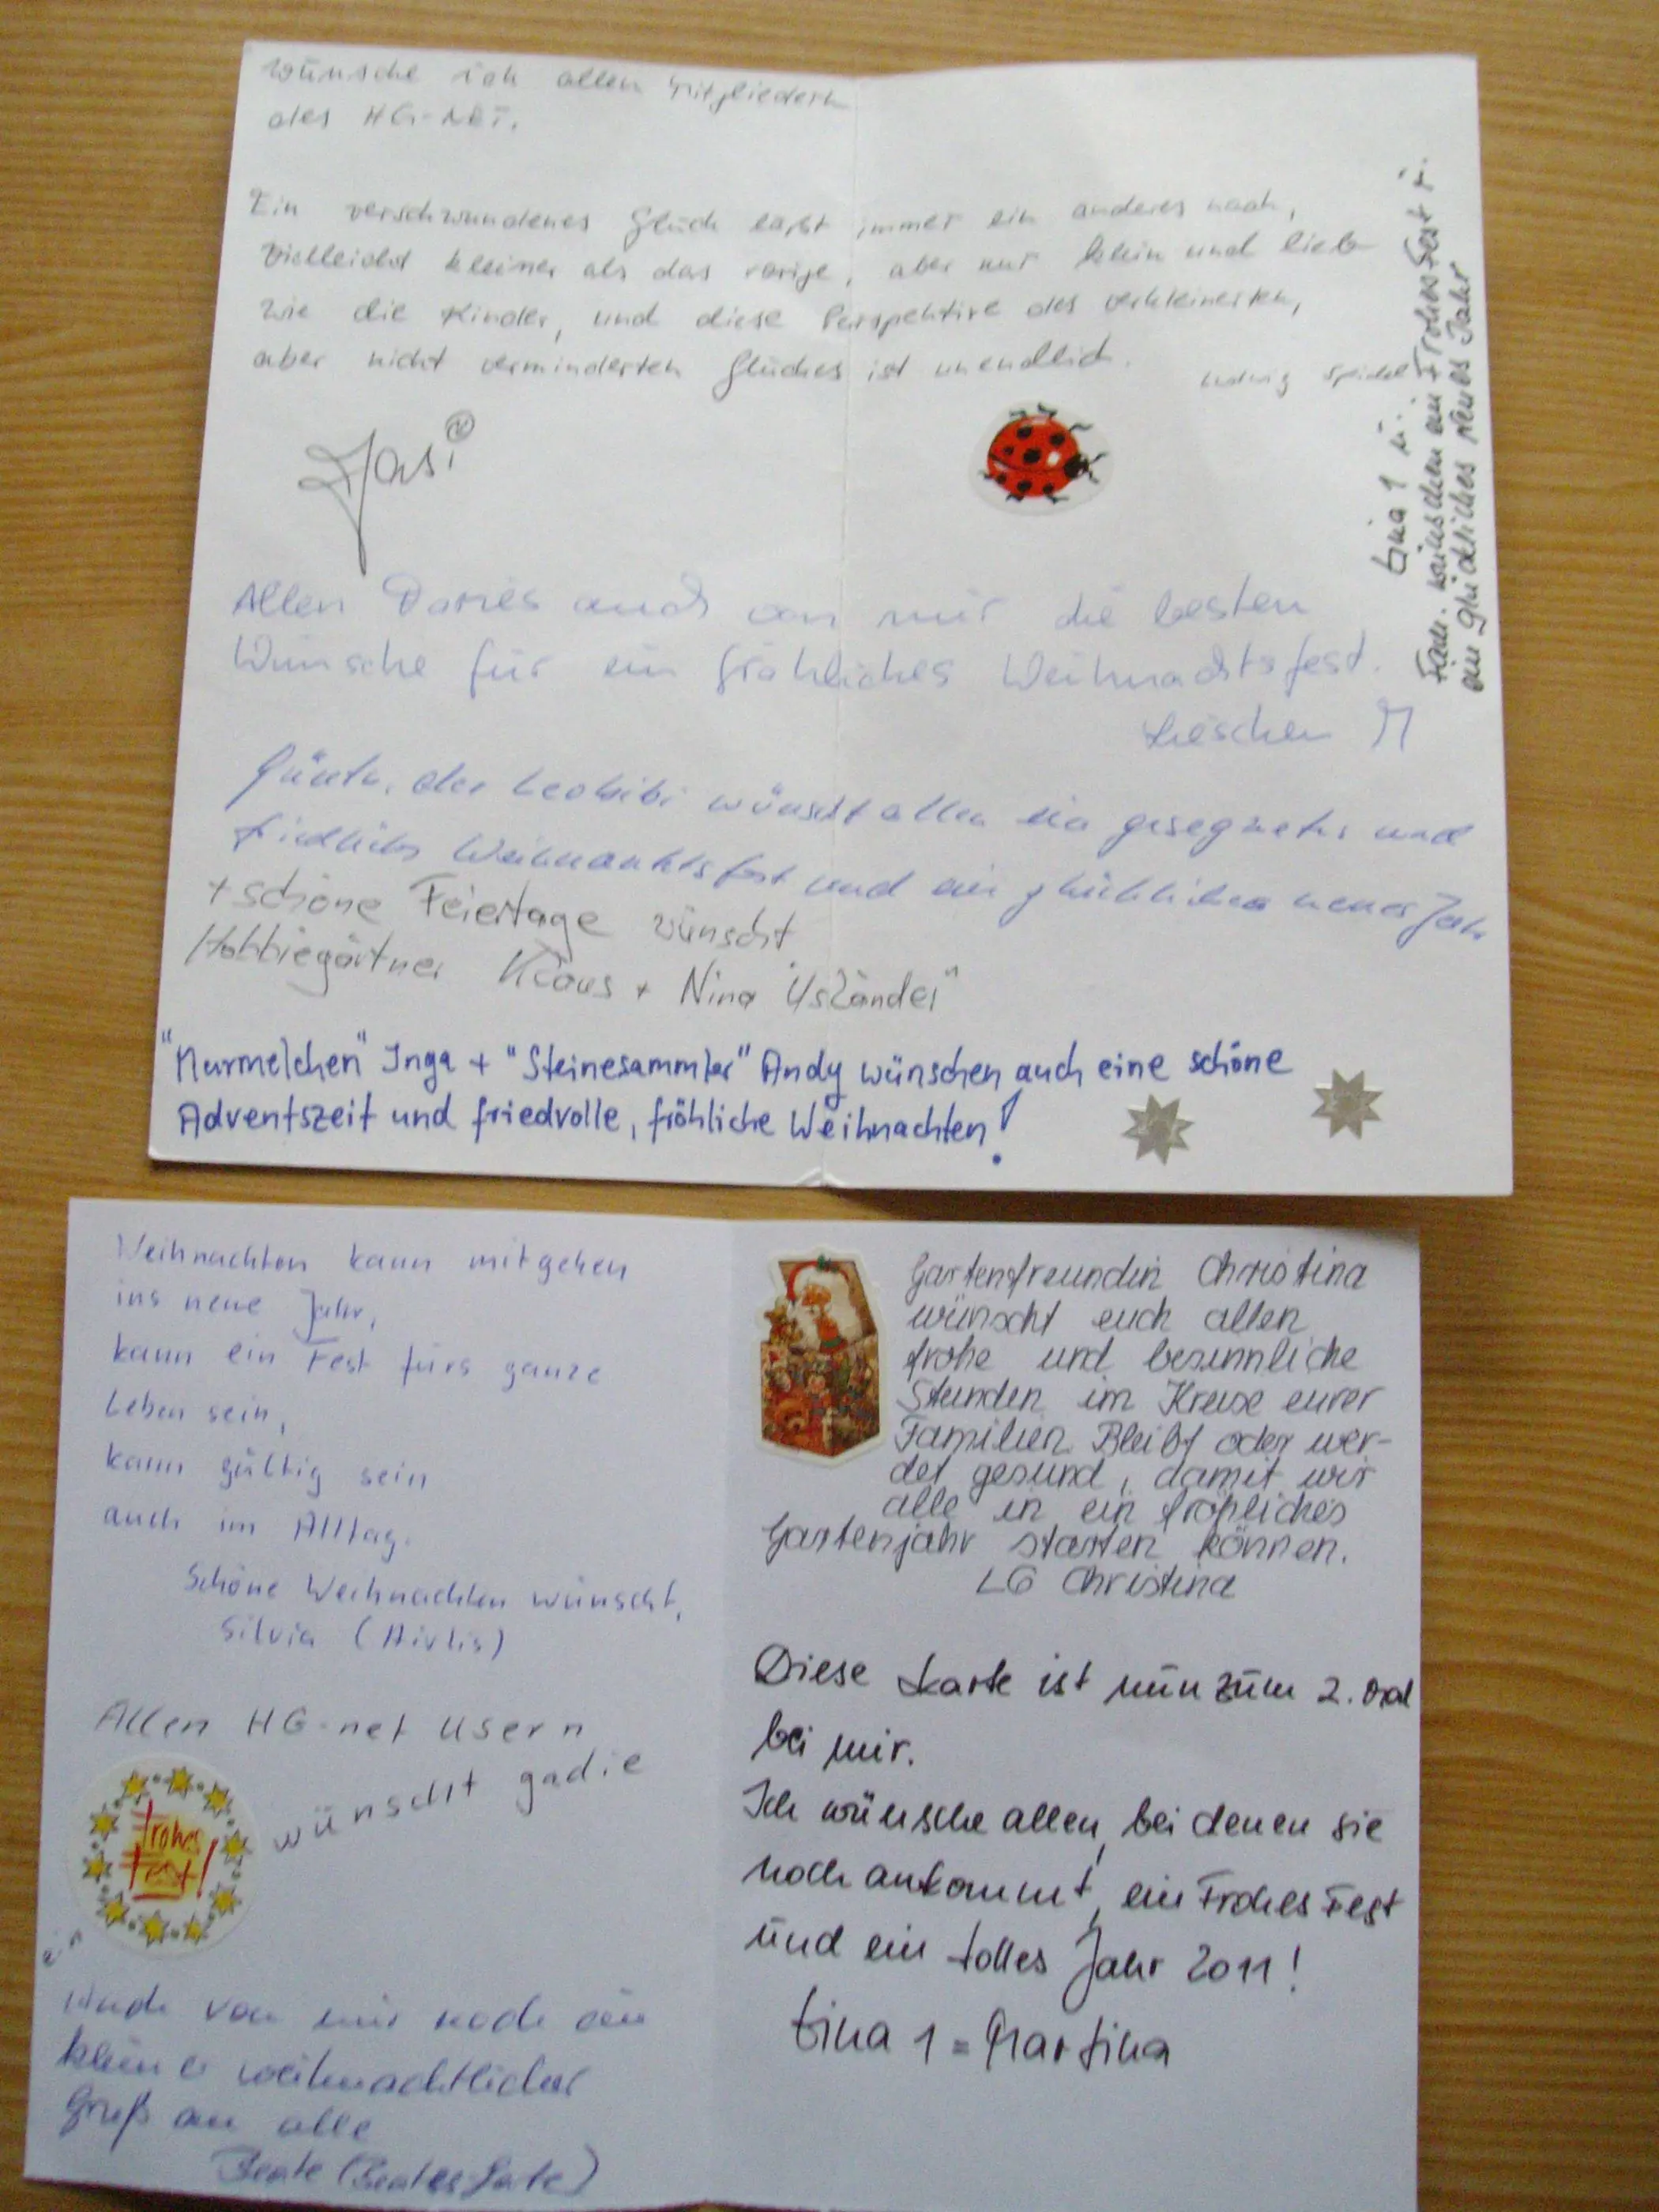 wünsche ich allen Mitgliedern
des HG-NET.
Ein verschwundenes Glück läßt immer ein anderes nach,
vielleicht kleiner als das vorige, aber nur klein und lieb
wie die Kinder, und diese Perspektive des verkleinerten,
aber nicht verminderten Glückes ist unendlich.
Ludwig
Allen auch von mir die besten
Wünsche für ein fröhliches Weihnachtsfest.
Lieschen M
der wünscht allen ein gesegnetes und
friedliches Weihnachtsfest und ein glückliches neues Jahr
+ schöne Feiertage wünscht
Hobbiegärtner Klaus + Nina
"Murmelchen" Inga + "Steinesammler" Andy wünschen auch eine schöne
Adventszeit und friedvolle, fröhliche Weihnachten!
tina 1 u.
Fam. wünschen ein Frohes Fest u.
ein glückliches Neues Jahr
Weihnachten kann mitgehen
ins neue Jahr,
kann ein Fest fürs ganze
Leben sein,
kann gültig sein
auch im Alltag.
Schöne Weihnachten wünscht,
Silvia (Aivlis)
Allen HG-net Usern
wünscht gadie
ein
Frohes
Fest!
Auch von mir noch ein
kleiner weihnachtlicher
Gruß an alle
Gartenfreundin Christina
wünscht euch allen
frohe und besinnliche
Stunden im Kreise eurer
Familien. Bleibt oder wer-
det gesund, damit wir
alle in ein fröhliches
Gartenjahr starten können.
LG Christina
Diese Karte ist nun zum 2. Mal
bei mir.
Ich wünsche allen, bei denen sie
noch ankommt, ein Frohes Fest
und ein tolles Jahr 2011!
tina 1 = Martina